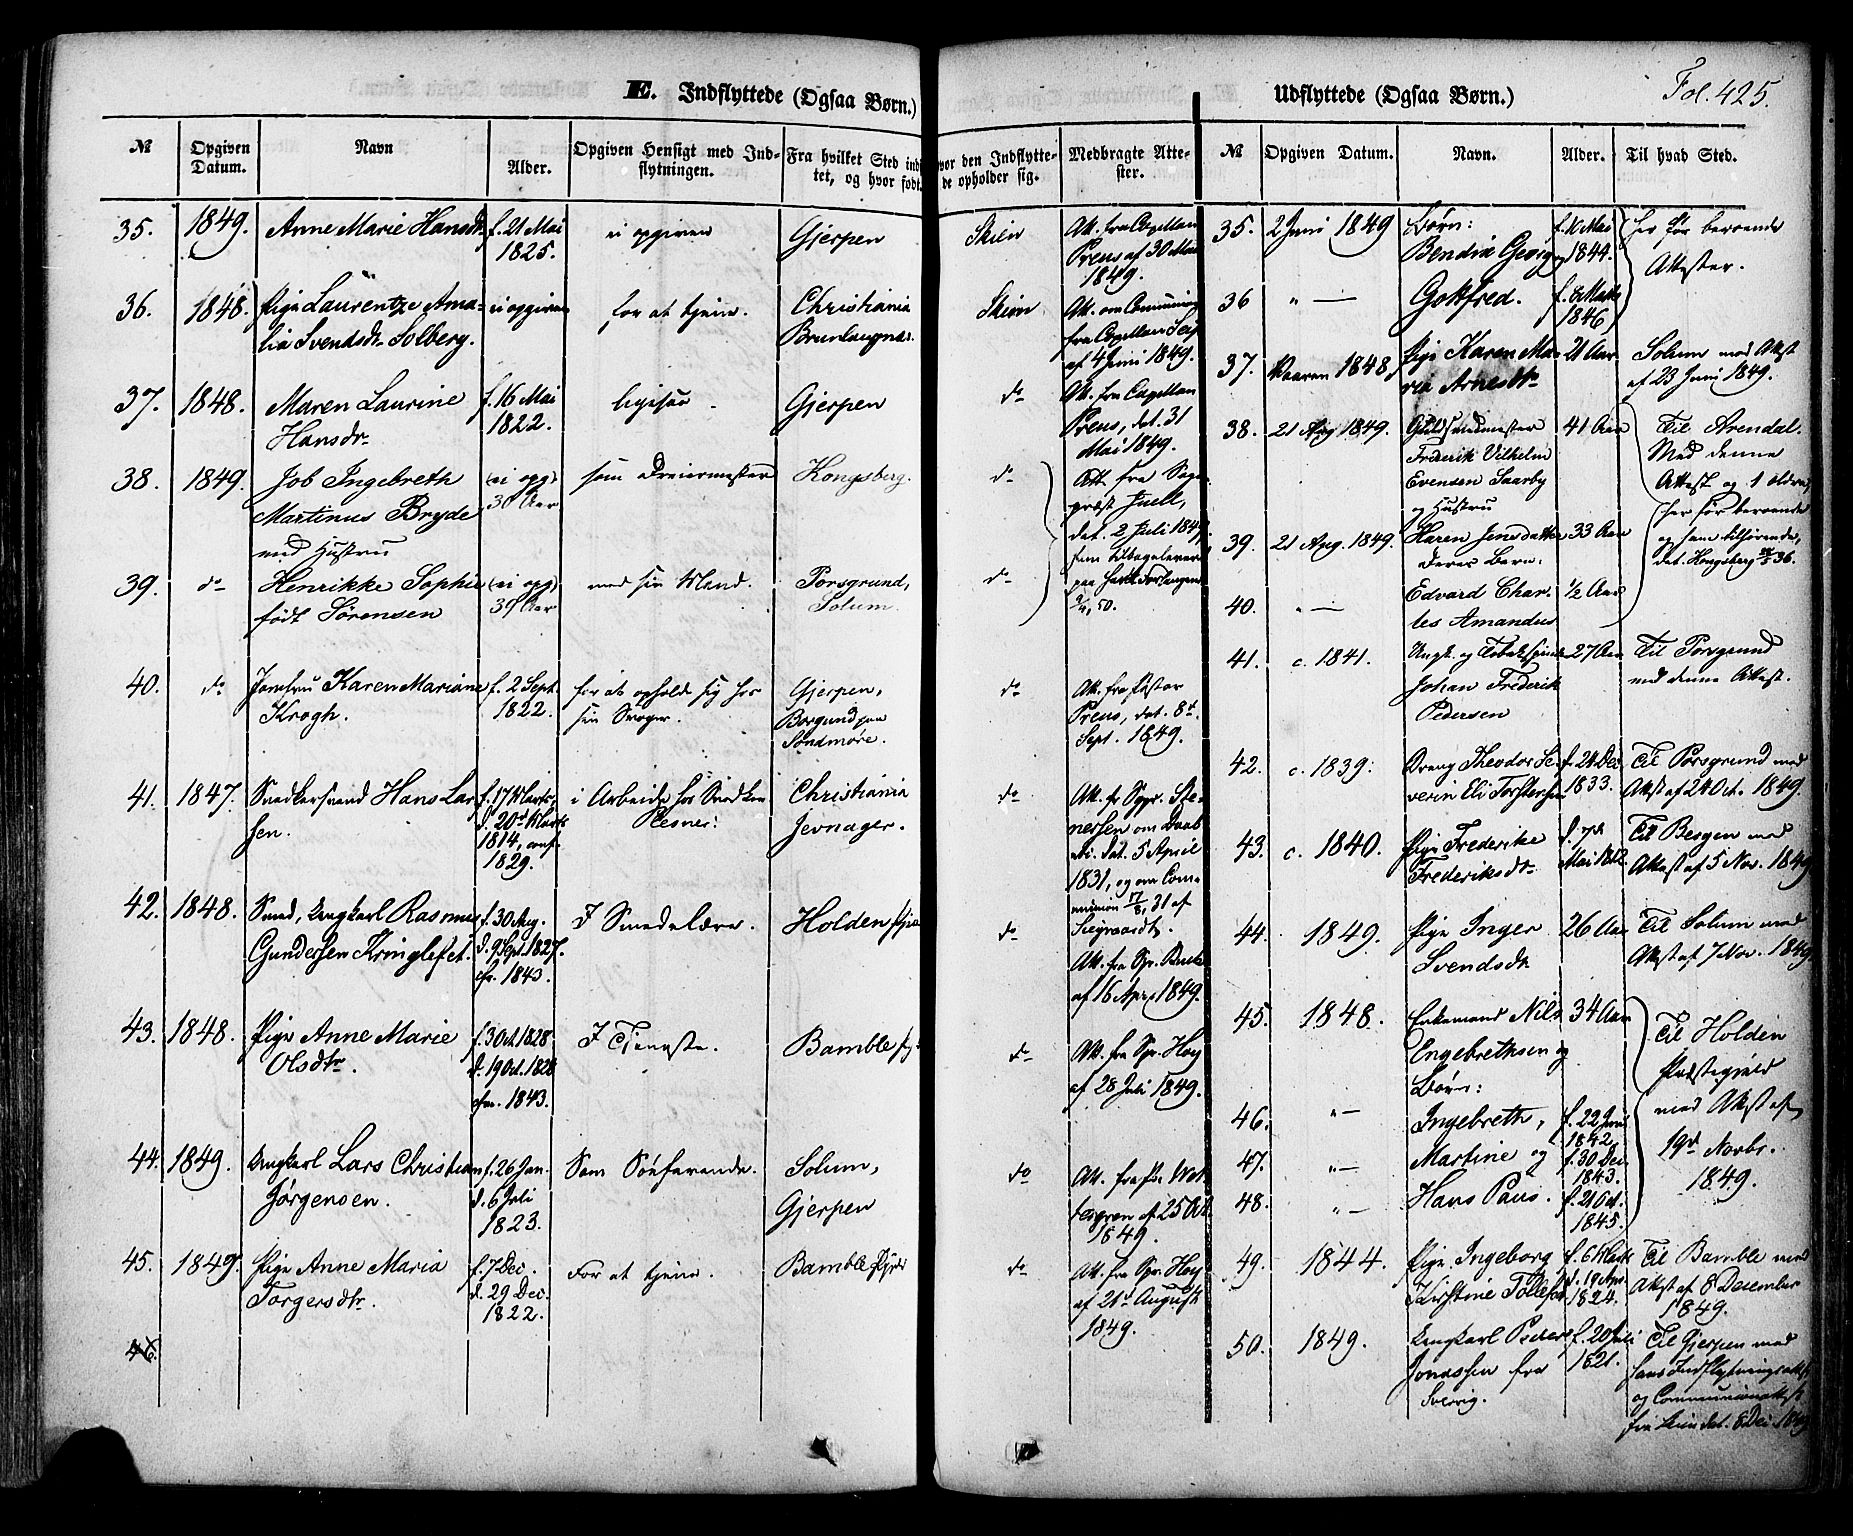 E. Indflyttede (Ogsaa Børn.)
№ Opgiven Datum. Navn Alder. Opgiven Hensigt med Indflytningen. Fra hvilket Sted ind tet, og hvor født.
vor den Indflytte- de opholder sig. Medbragte Atte- ster.
35. 1849. Anne Marie Hansdr f. 21 Mai ei opgiven Gjerpen Skien Att. fra Capellan
1825. Preus af 30 Mai
1849.
36. 1848. Pige Laurentze Ama- ei opgiven for at tjene. Christiania Skien Att. om Communion
lia Svendsdr. Solberg. Brunlaugnæs. fra Capellan
af 4 Juni 1849.
37. 1848. Maren Laurine f. 16 Mai ligesaa Gjerpen do Att. fra Capellan
Hansdr 1822. Preus, dat. 31
Mai 1849.
38. 1849. Job Ingebreth ei opg: som Dreiermester Kongsberg. do Att. fra Sogne-
Martinus Bryde 30 Aar præst Juell,
med Hustru dat. 2 Juli 1849,
39. do Henrikke Sophie ei opg: med sin Mand. Porsgrund, do
født Sörensen 30 Aar Solum.
40. do Jomfru Karen Mariane f. 2 Sept. for at opholde sig hos Gjerpen, do Att. fra Pastor
Krogh. 1822. sin Svoger. Borgund paa Preus, dat. 8de
Søndmøre. Sept. 1849.
41. 1847. Snedkersvend Hans Lar- f. 17 Marts, i Arbeide hos Snedker Christiania do Att. fr. Sgpr. Ste-
sen. d. 20de Marts Plesner: Jevnager. nersen om Daab
1814, conf. dat. 5 April
1829. 1831, og om Com-
munion 17/8, 31 af
42. 1848. Smed, Ungkarl Rasmus f. 30 Aug. I Smedelære. Holden do
Gundersen Kringlefet. d. 9 Sept. 1827. Att. fra Spr.
cfr. 1843 af 16 Apr. 1849.
43. 1848. Pige Anne Marie f. 3 Oct. 1828 I Tjeneste. Bamble do Att. fra Spr. Hoy
Olsdtr. d. 19 Oct. 1828 af 28 Juli 1849.
cfr. 1843.
44. 1849. Ungkarl Lars Christian f. 26 Jan. Som Söefarende. Solum, do
Jørgensen. d. 6 Juli Gjerpen af 25 Oct.
1823. 1849.
45. 1849. Pige Anne Maria f. 7 Dec. For at tjene. Bamble do Att. fra Spr. Hoy
Torgersdtr. d. 29 Dec. af 21de August
1822. 1849.
46.
Udflyttede (Ogsaa Børn.) Fol. 425.
№ Opgiven Datum. Navn. Alder. Til hvad Sted.
35. 2 Juni 1849 Børn: her før beroende
Bendix Georg og 1844. Attester.
36 " — Gottfred. 1846
37. Vaaren 1848, Pige Karen Ma- 21 Aar. Solum med Attest
ria Arnesdtr af 23 Juni 1849.
38. 21 Aug 1849. Guldsmedmester 41 Aar Til Arendal.
Frederik Vilhelm Med denne
Evensen Saarby Attest og 1 ældre,
og Hustru her før beroende
39. 21 Aug. 1849. Karen Jensdatter 33 Aar
Deres Barn: dat. Kongsberg
40. " — Edvard Char- ½ Aar
les Amandus
41. c. 1841. Ungk. og 27 Aar Til Porsgrund
Johan Frederik med denne Attest.
Pedersen
42. c. 1839. Dreng Theodor Se- f. 24 Dec Til Porsgrund med
verin Eli Torstensen 1833. Attest af 24 Oct. 1849.
43. c. 1840. Pige Frederike f. 7de Til Bergen med
Frederiksdtr Mai Attest af 5 Nov. 1849
44. 1849. Pige Inger 26 Aar Til Solum med
Svendsdtr Attest af 7 Nov. 1849
45. 1848. Enkemand Nils 34 Aar Til Holden
Engebrethsen og Præstegield
Børn: med Attest af
46. " — Ingebreth, f. 22 Juni 1842 19de Novbr.
47. " — Martine og f. 30 Dec. 1843. 1849.
48. " — Hans Paus. f. 21 Oct. 1845.
49. 1844. Pige Ingeborg f. 6 Marts Til Bamble med
Kirstine Tollefsd. d. 19 Apr. 1824. Attest af 8 December
1849.
50. 1849. Ungkarl Peder f. 20 Juli Til Gjerpen med
Jonassen fra 1821. hans Indflytningsattest
Sverrig. og Communionattest
fra Skien dat. 8 Dec. 1849